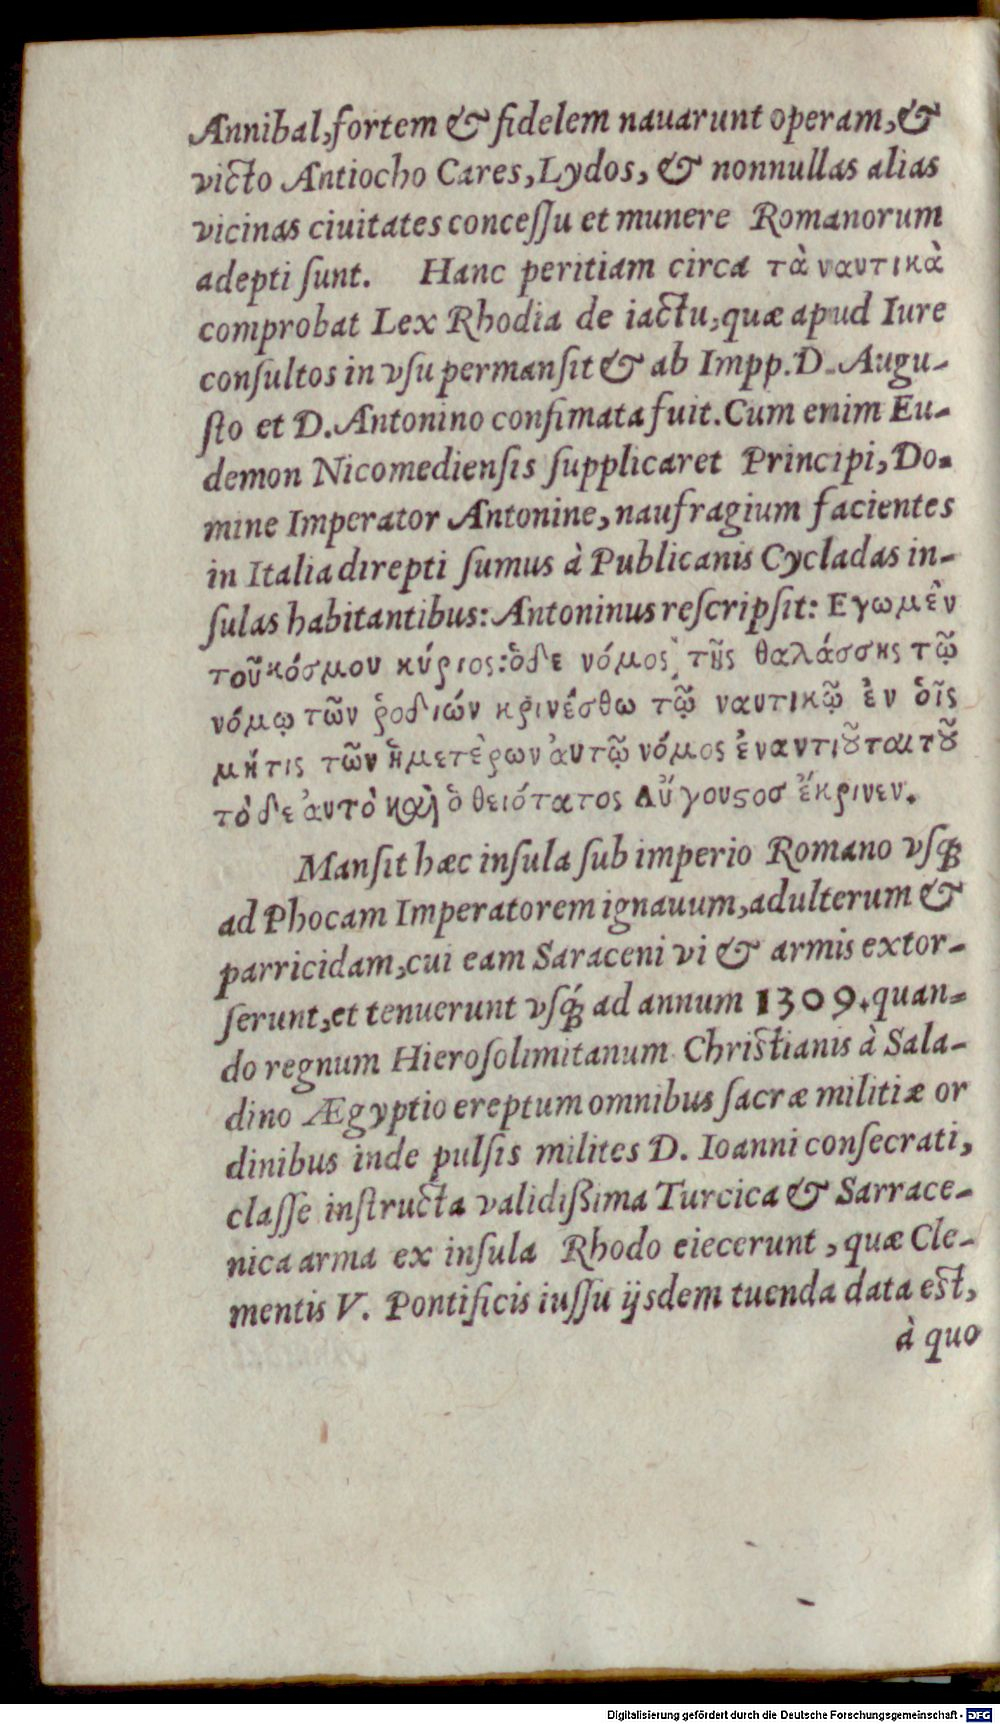 Annibal, fortem & fidelem nauarunt operam, &
victo Antiocho Cares, Lydos, & nonnullas alias
vicinas ciuitates conceſſu et munere Romanorum
adepti ſunt. Hanc peritiam circa τὰ ναυτικὰ
comprobat Lex Rhodia de iactu, quæ apud Iure
conſultos in vſu permanſit & ab Impp. D. Augu-
ſto et D. Antonino confimata fuit. Cum enim Eu-
demon Nicomedienſis ſupplicaret Principi, Do-
mine Imperator Antonine, naufragium facientes
in Italia direpti ſumus à Publicanis Cycladas in-
ſulas habitantibus: Antoninus reſcripſit: Εγωμὲν
τοῦ κόσμου κύριος: ὁδε νόμος τῆς θαλάσσης τῷ
νόμῳ τῶν ῥοδιών κρινέσθω τῷ ναυτικῷ ἐν ὁῖς
μήτις τῶν ἡμετὲρων ἀυτῷ νόμος ἐναντιȣ͂ται τȣ͂
τὸ δε ἀυτὸ καὶ ὁ θειότατος Αὔγουϛοσ ἔκρινεν.
Manſit hæc inſula ſub imperio Romano vſq;
ad Phocam Imperatorem ignauum, adulterum &
parricidam, cui eam Saraceni vi & armis extor-
ſerunt, et tenuerunt vſq; ad annum 1309. quan-
do regnum Hieroſolimitanum Chriſtianis à Sala-
dino Ægyptio ereptum omnibus ſacræ militiæ or
dinibus inde pulſis milites D. Ioanni conſecrati,
claſſe inſtructa validißima Turcica & Sarrace-
nica arma ex inſula Rhodo eiecerunt, quæ Cle-
mentis V. Pontificis iuſſu ijsdem tuenda data eſt,
à quo
Digitalisierung gefördert durch die Deutsche Forschungsgemeinschaft - DFG